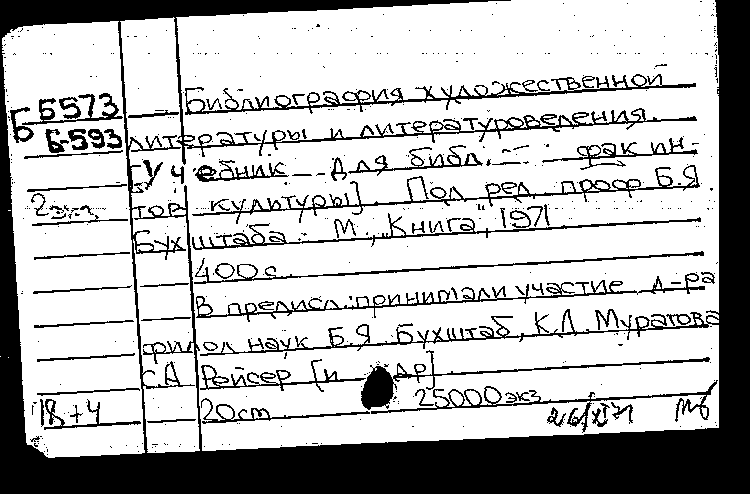 Б 5573
Б-593
Библиография художественной
литературы и литературоведения.
[Учебник для библ. фак ин-
2 экз
тов культуры]. Под ред. проф Б.Я
Бухштаба. М., „Книга", 1971
400 с.
В предисл.: принимали участие д-ра
филол наук Б.Я. Бухштаб, К.Д. Муратова
С.А Рейсер [и др]
18+4
20 cm 25000 экз